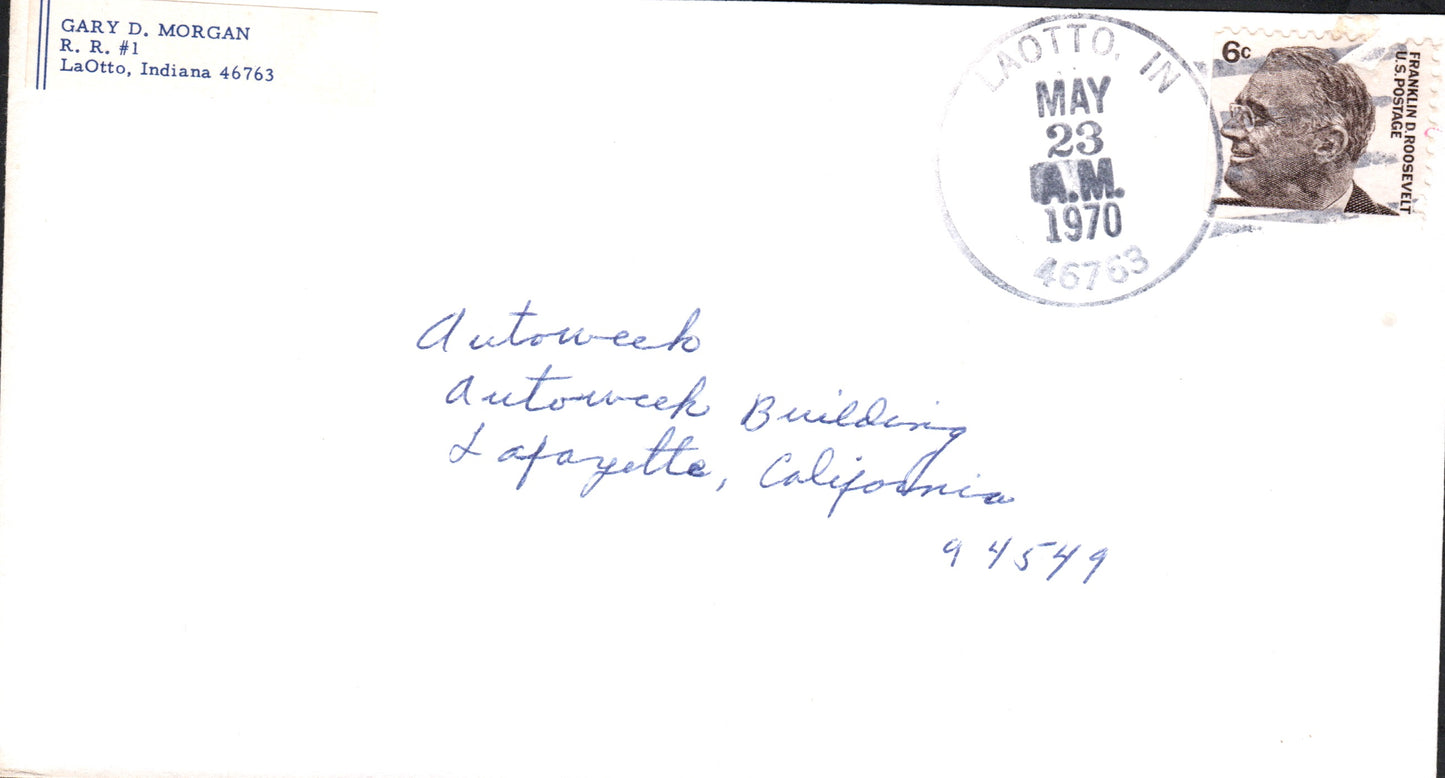 GARY D. MORGAN
R. R. #1
LaOtto, Indiana 46763
LAOTTO, IN
MAY
23
A.M.
1970
46763
6c
FRANKLIN D. ROOSEVELT
U.S. POSTAGE
Autoweek
Autoweek Building
Lafayette, California
94549